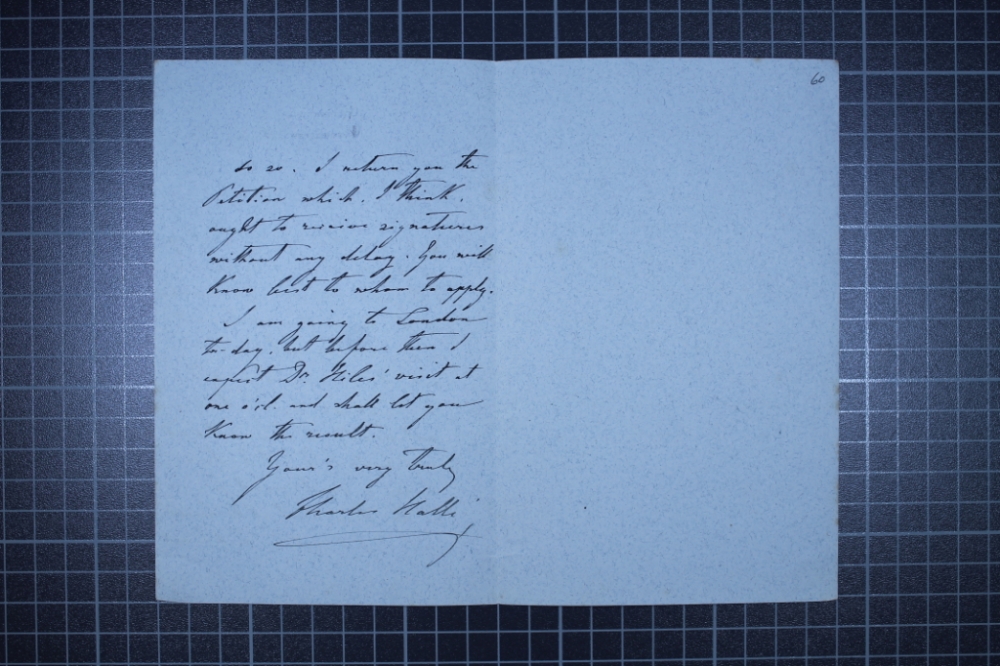 do so. I return you the
Petition which, I think,
ought to receive signatures
without any delay. You will
know best to whom to apply.
I am going to London
to-day, but before then I
expect Dr. Hiles' visit at
one o'cl. and shall let you
know the result.
Your's very truly
Charles Hallé
60